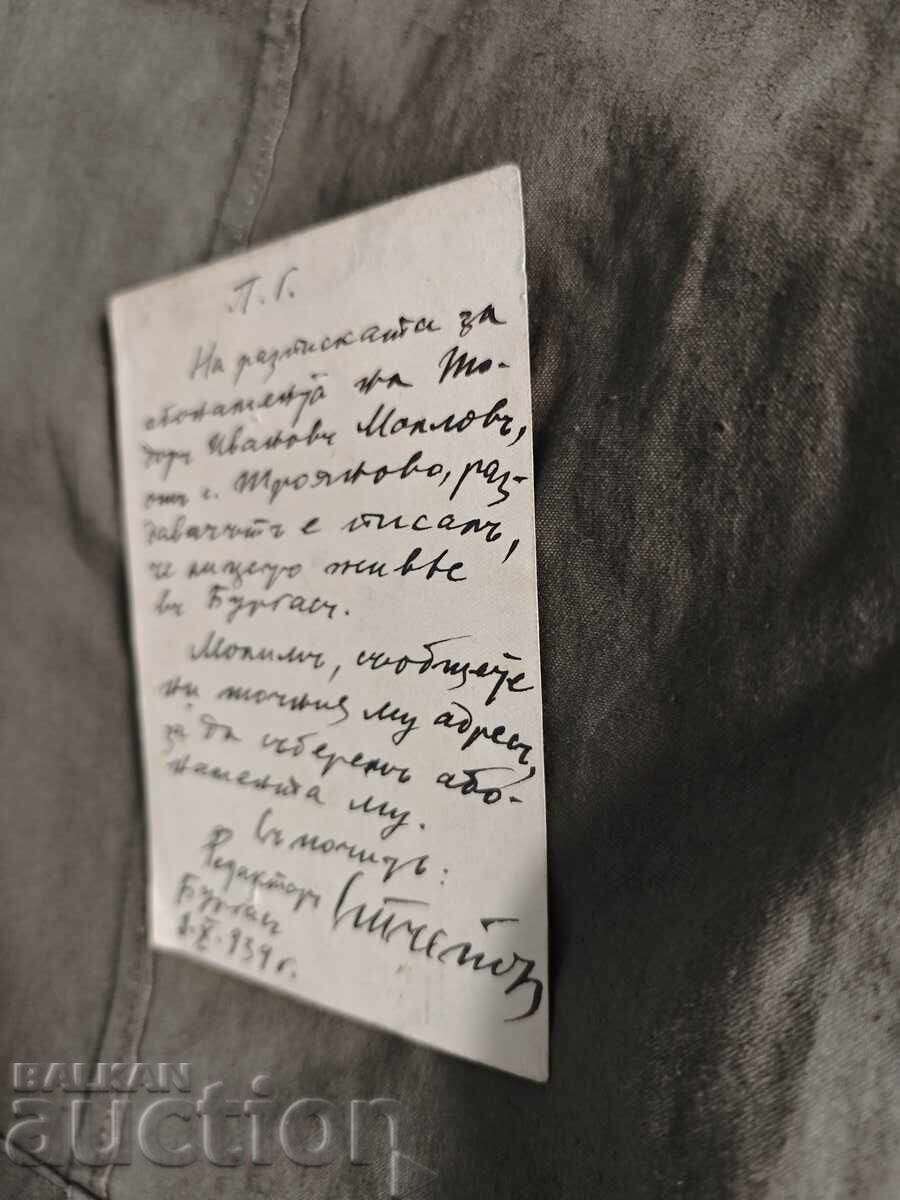 П. Г.
На разписката за
абонамента на То-
доръ Ивановъ
отъ с. Трояново, раз-
давачътъ е писалъ,
че живѣе
въ Бургасъ.
Молимъ, съобщете
ни точния му адресъ,
за да съберемъ або-
намента му.
Съ почить:
Редакторъ
Бургасъ
X. 934 г.
BALKAN
auction